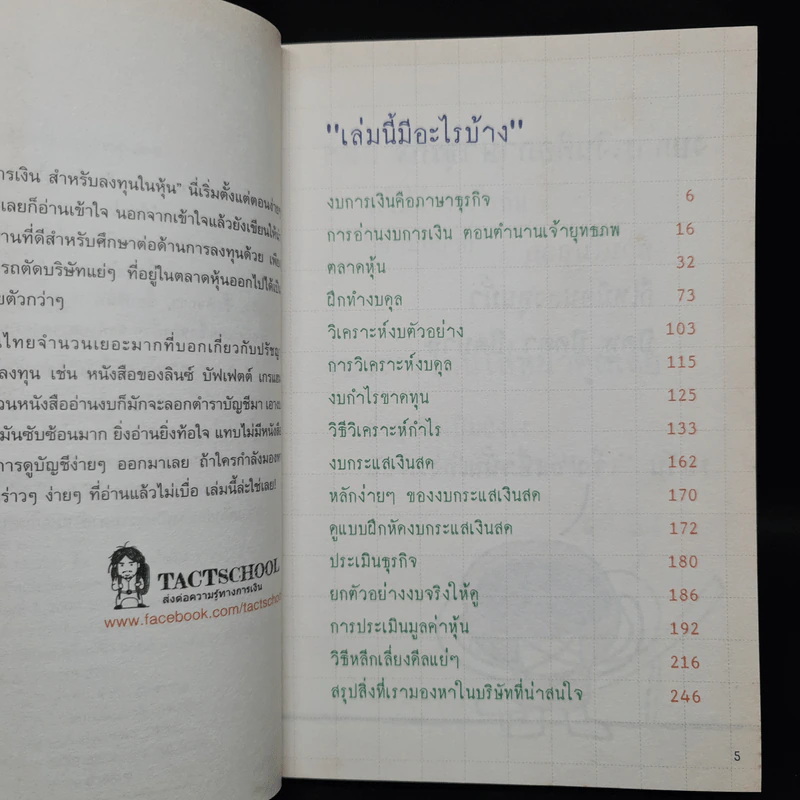 การเงิน สำหรับลงทุนในหุ้น" นี่เริ่มตั้งแต่ตอนง่ายๆ
เลยก็อ่านเข้าใจ นอกจากเข้าใจแล้วยังเขียนให้
านที่ดีสำหรับศึกษาต่อด้านการลงทุนด้วย
รถตัดบริษัทแย่ๆ ที่อยู่ในตลาดหุ้นออกไปได้
ยตัวกว่าๆ
นไทยจำนวนเยอะมากที่บอกเกี่ยวกับปรัชญ
ลงทุน เช่น หนังสือของลินซ์ บัฟเฟตต์
วนหนังสืออ่านงบก็มักจะลอกตำราบัญชีมา
มันซับซ้อนมาก ยิ่งอ่านยิ่งท้อใจ แทบไม่มีหนังสือ
การดูบัญชีง่ายๆ ออกมาเลย ถ้าใครกำลังมอง
ร่าวๆ ง่ายๆ ที่อ่านแล้วไม่เบื่อ เล่มนี้ล่ะใช่เลย!!
TACTSCHOOL
ส่งต่อความรู้ทางการเงิน
www.facebook.com/tactschool
"เล่มนี้มีอะไรบ้าง"
งบการเงินคือภาษาธุรกิจ 6
การอ่านงบการเงิน ตอนตำนานเจ้ายุทธภพ 16
ตลาดหุ้น 32
ฝึกทำงบดุล 73
วิเคราะห์งบตัวอย่าง 103
การวิเคราะห์งบดุล 115
งบกำไรขาดทุน 125
วิธีวิเคราะห์กำไร 133
งบกระแสเงินสด 162
หลักง่ายๆ ของงบกระแสเงินสด 170
ดูแบบฝึกหัดงบกระแสเงินสด 172
ประเมินธุรกิจ 180
ยกตัวอย่างงบจริงให้ดู 186
การประเมินมูลค่าหุ้น 192
วิธีหลีกเลี่ยงดีลแย่ๆ 216
สรุปสิ่งที่เรามองหาในบริษัทที่น่าสนใจ 246
5